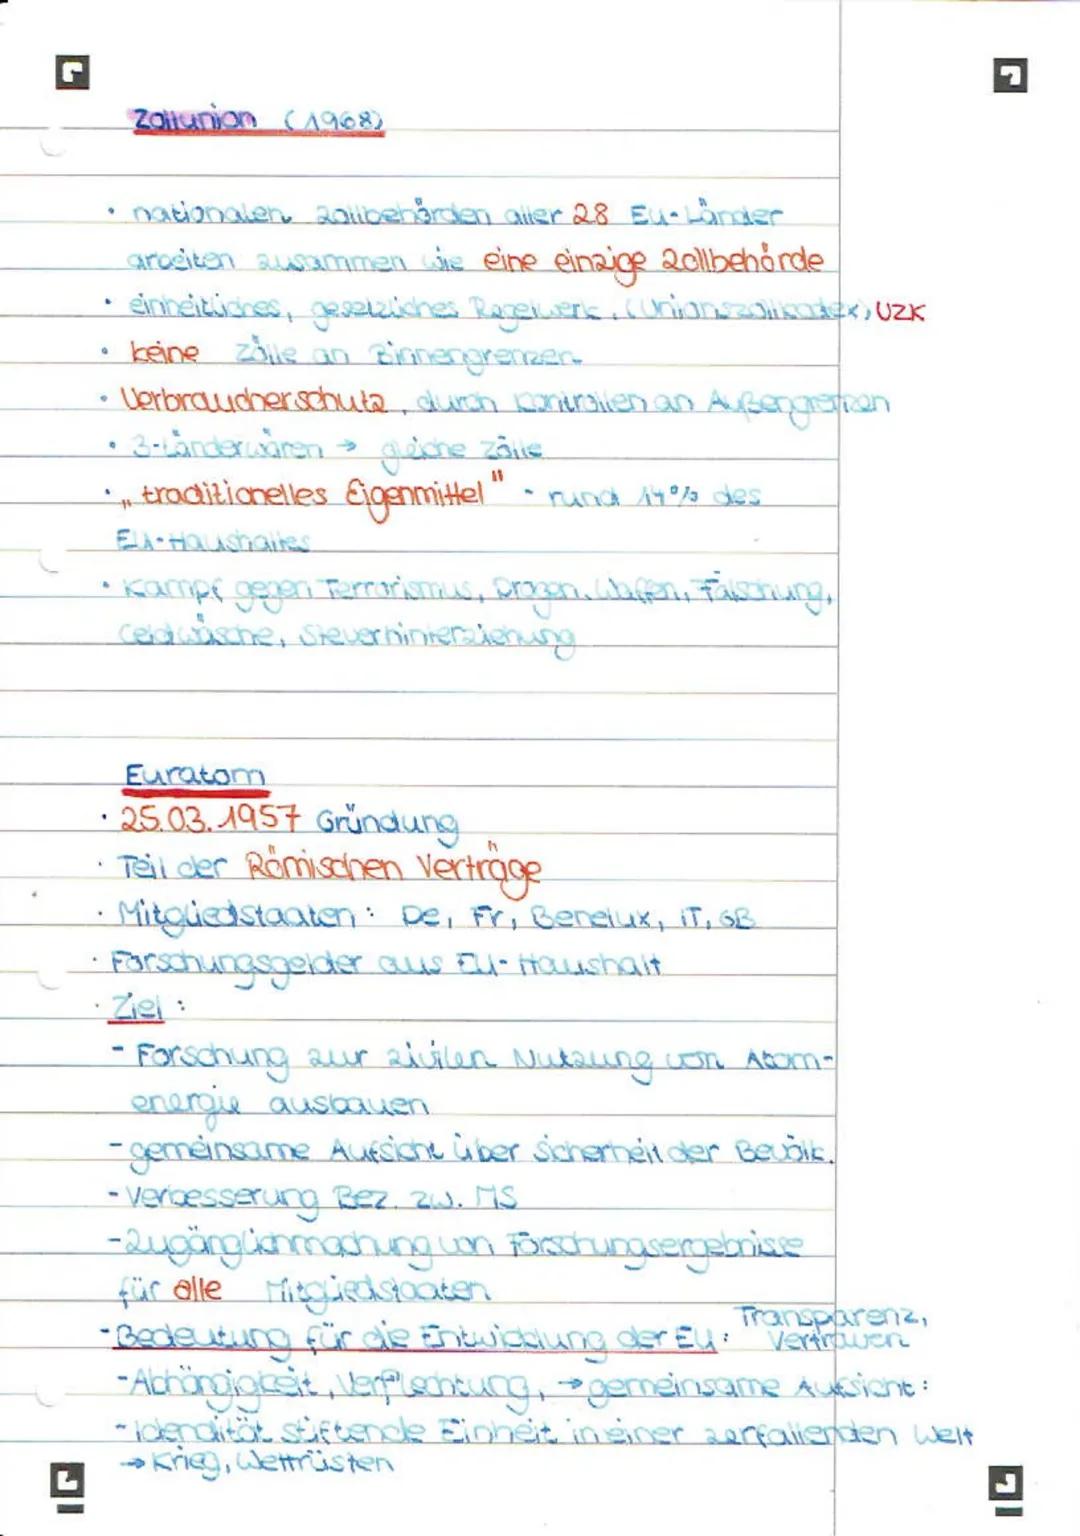 Zollunion (1968)
• nationalen Zollbehörden aller 28 EU-Länder
arbeiten zusammen wie eine einzige Zollbehörde
• einheitliches, gesetzliches Regelwerk. (Unionszollkodex) UZK
• keine Zölle an Binnengrenzen
• Verbraucherschutz, durch Kontrollen an Außengrenzen
• 3-Länderwären → gleiche Zölle
• „traditionelles Eigenmittel" - rund 14% des
EU-Haushaltes
• Kampf gegen Terrorismus, Drogen, Waffen, Fälschung,
Geldwäsche, Steuerhinterziehung
Euratom
• 25.03.1957 Gründung
• Teil der Römischen Verträge
• Mitgliedstaaten: De, Fr, Benelux, IT, GB
• Forschungsgelder aus EU-Haushalt
• Ziel:
- Forschung zur zivilen Nutzung von Atom-
energie ausbauen
- gemeinsame Aufsicht über Sicherheit der Bevölk.
- Verbesserung Bez. zw. MS
- Zugänglichmachung von Forschungsergebnisse
für alle Mitgliedstaaten
- Bedeutung für die Entwicklung der EU: Transparenz,
Vertrauen
- Abhängigkeit, Verflechtung, → gemeinsame Aufsicht:
- Idendität stiftende Einheit in einer zerfallenden Welt
→ Krieg, Wettrüsten